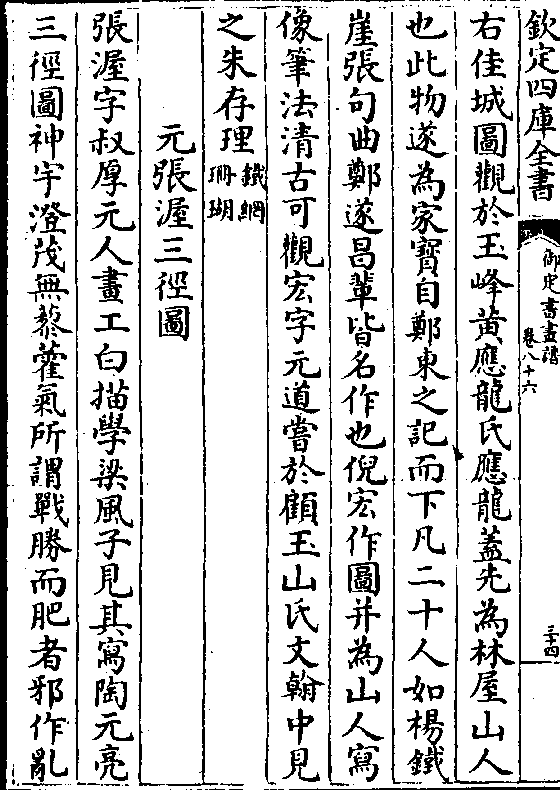 欽定四庫全書
御定書畫譜
卷八十六
三十四
右佳城圖觀於玉峰黃應龍氏應龍蓋先為林屋山人
也此物遂為家寳自鄭東之記而下凡二十人如楊鐵
崖張句曲鄭遂昌輩皆名作也倪宏作圖并為山人寫
像筆法清古可觀宏字元道嘗於顧玉山氏文翰中見
之朱存理鐵網珊瑚
元張渥三徑圖
張渥字叔厚元人畫工白描學梁風子見其寫陶元亮
三徑圖神宇澄茂無藜藿氣所謂戰勝而肥者邪作亂